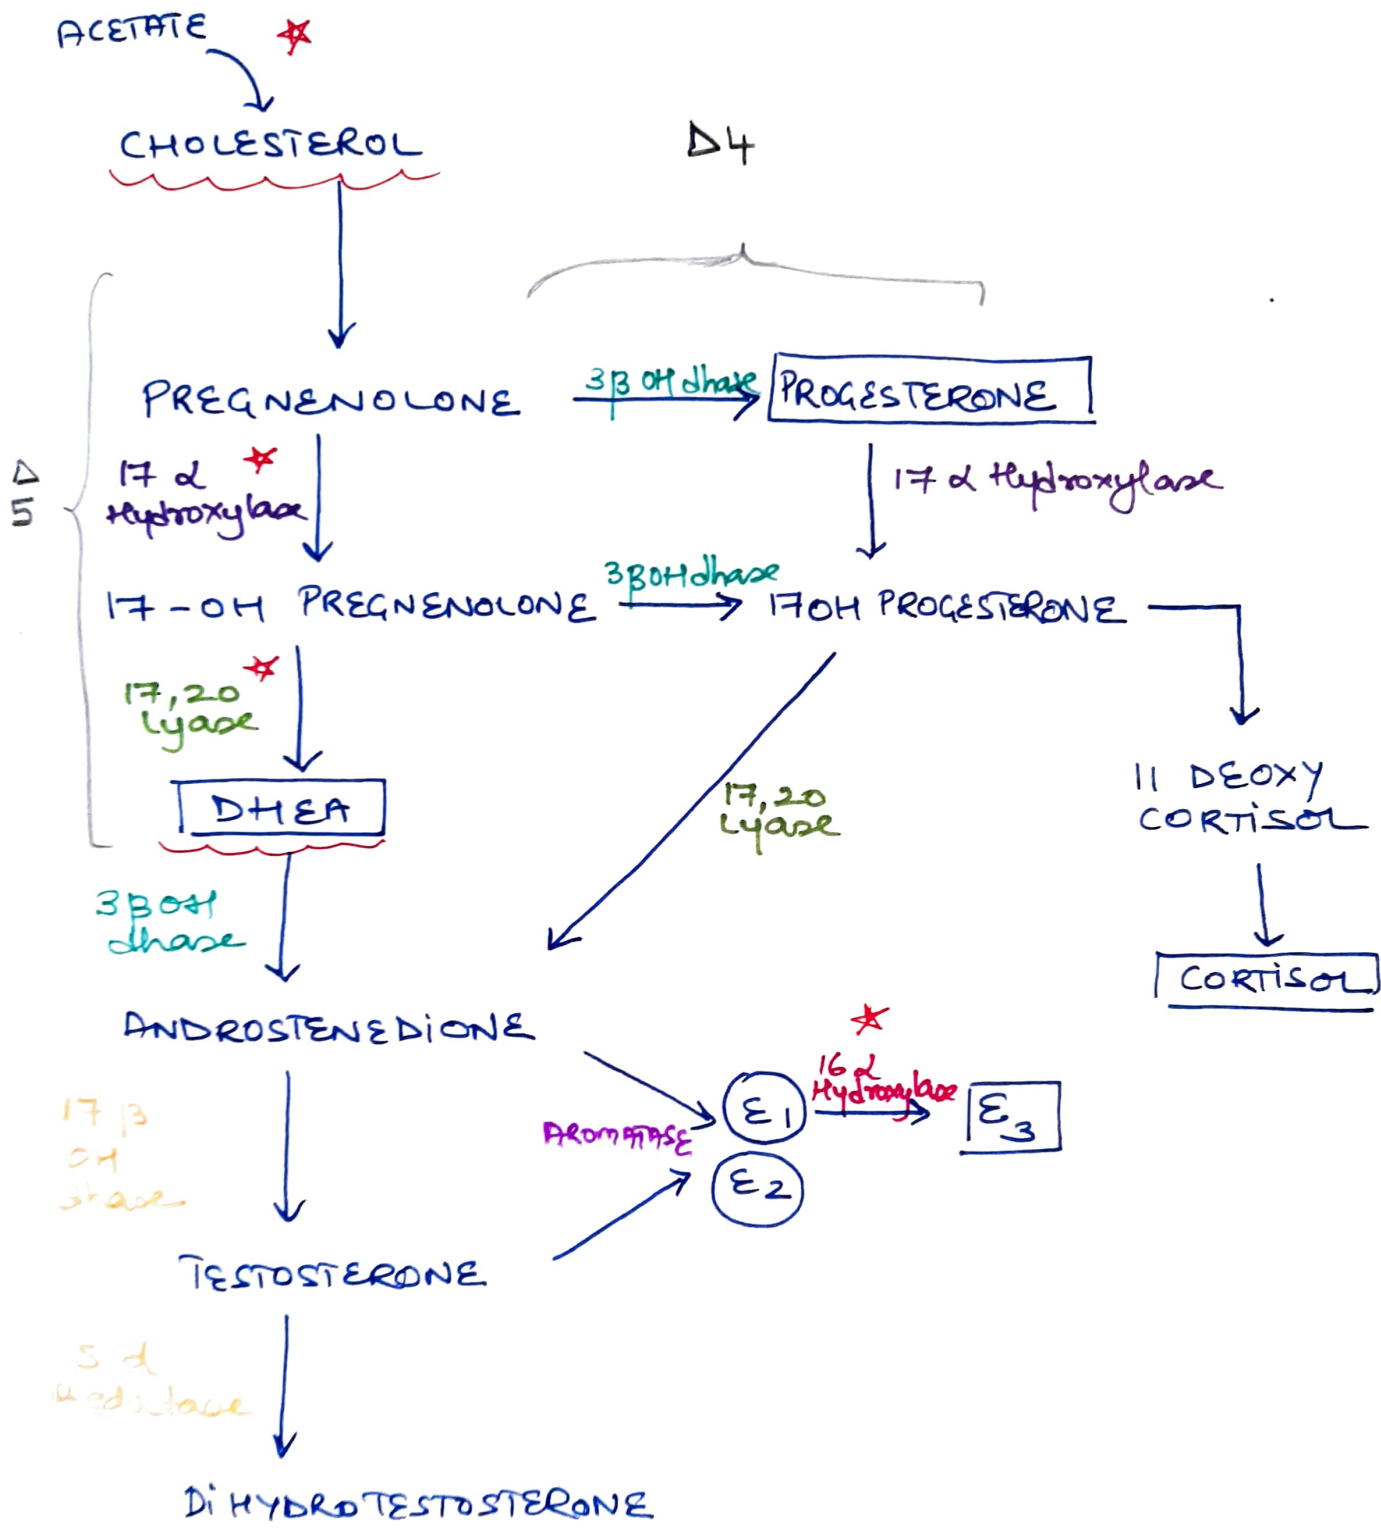 ACETATE
CHOLESTEROL
Δ4
PREGNENOLONE
3β OH dhase
PROGESTERONE
Δ
5
17 α
Hydroxylase
17 α Hydroxylase
17-OH PREGNENOLONE
3βOHdhase
17OH PROGESTERONE
17,20
Lyase
DHEA
17,20
Lyase
11 DEOXY
CORTiSOL
3βOH
dhase
CORTiSOL
ANDROSTENEDiONE
16 α
Hydroxylase
E1
E3
AROMATASE
E2
17 β
OH
dhase
TESTOSTERONE
5 α
Reductase
DiHYDROTESTOSTERONE